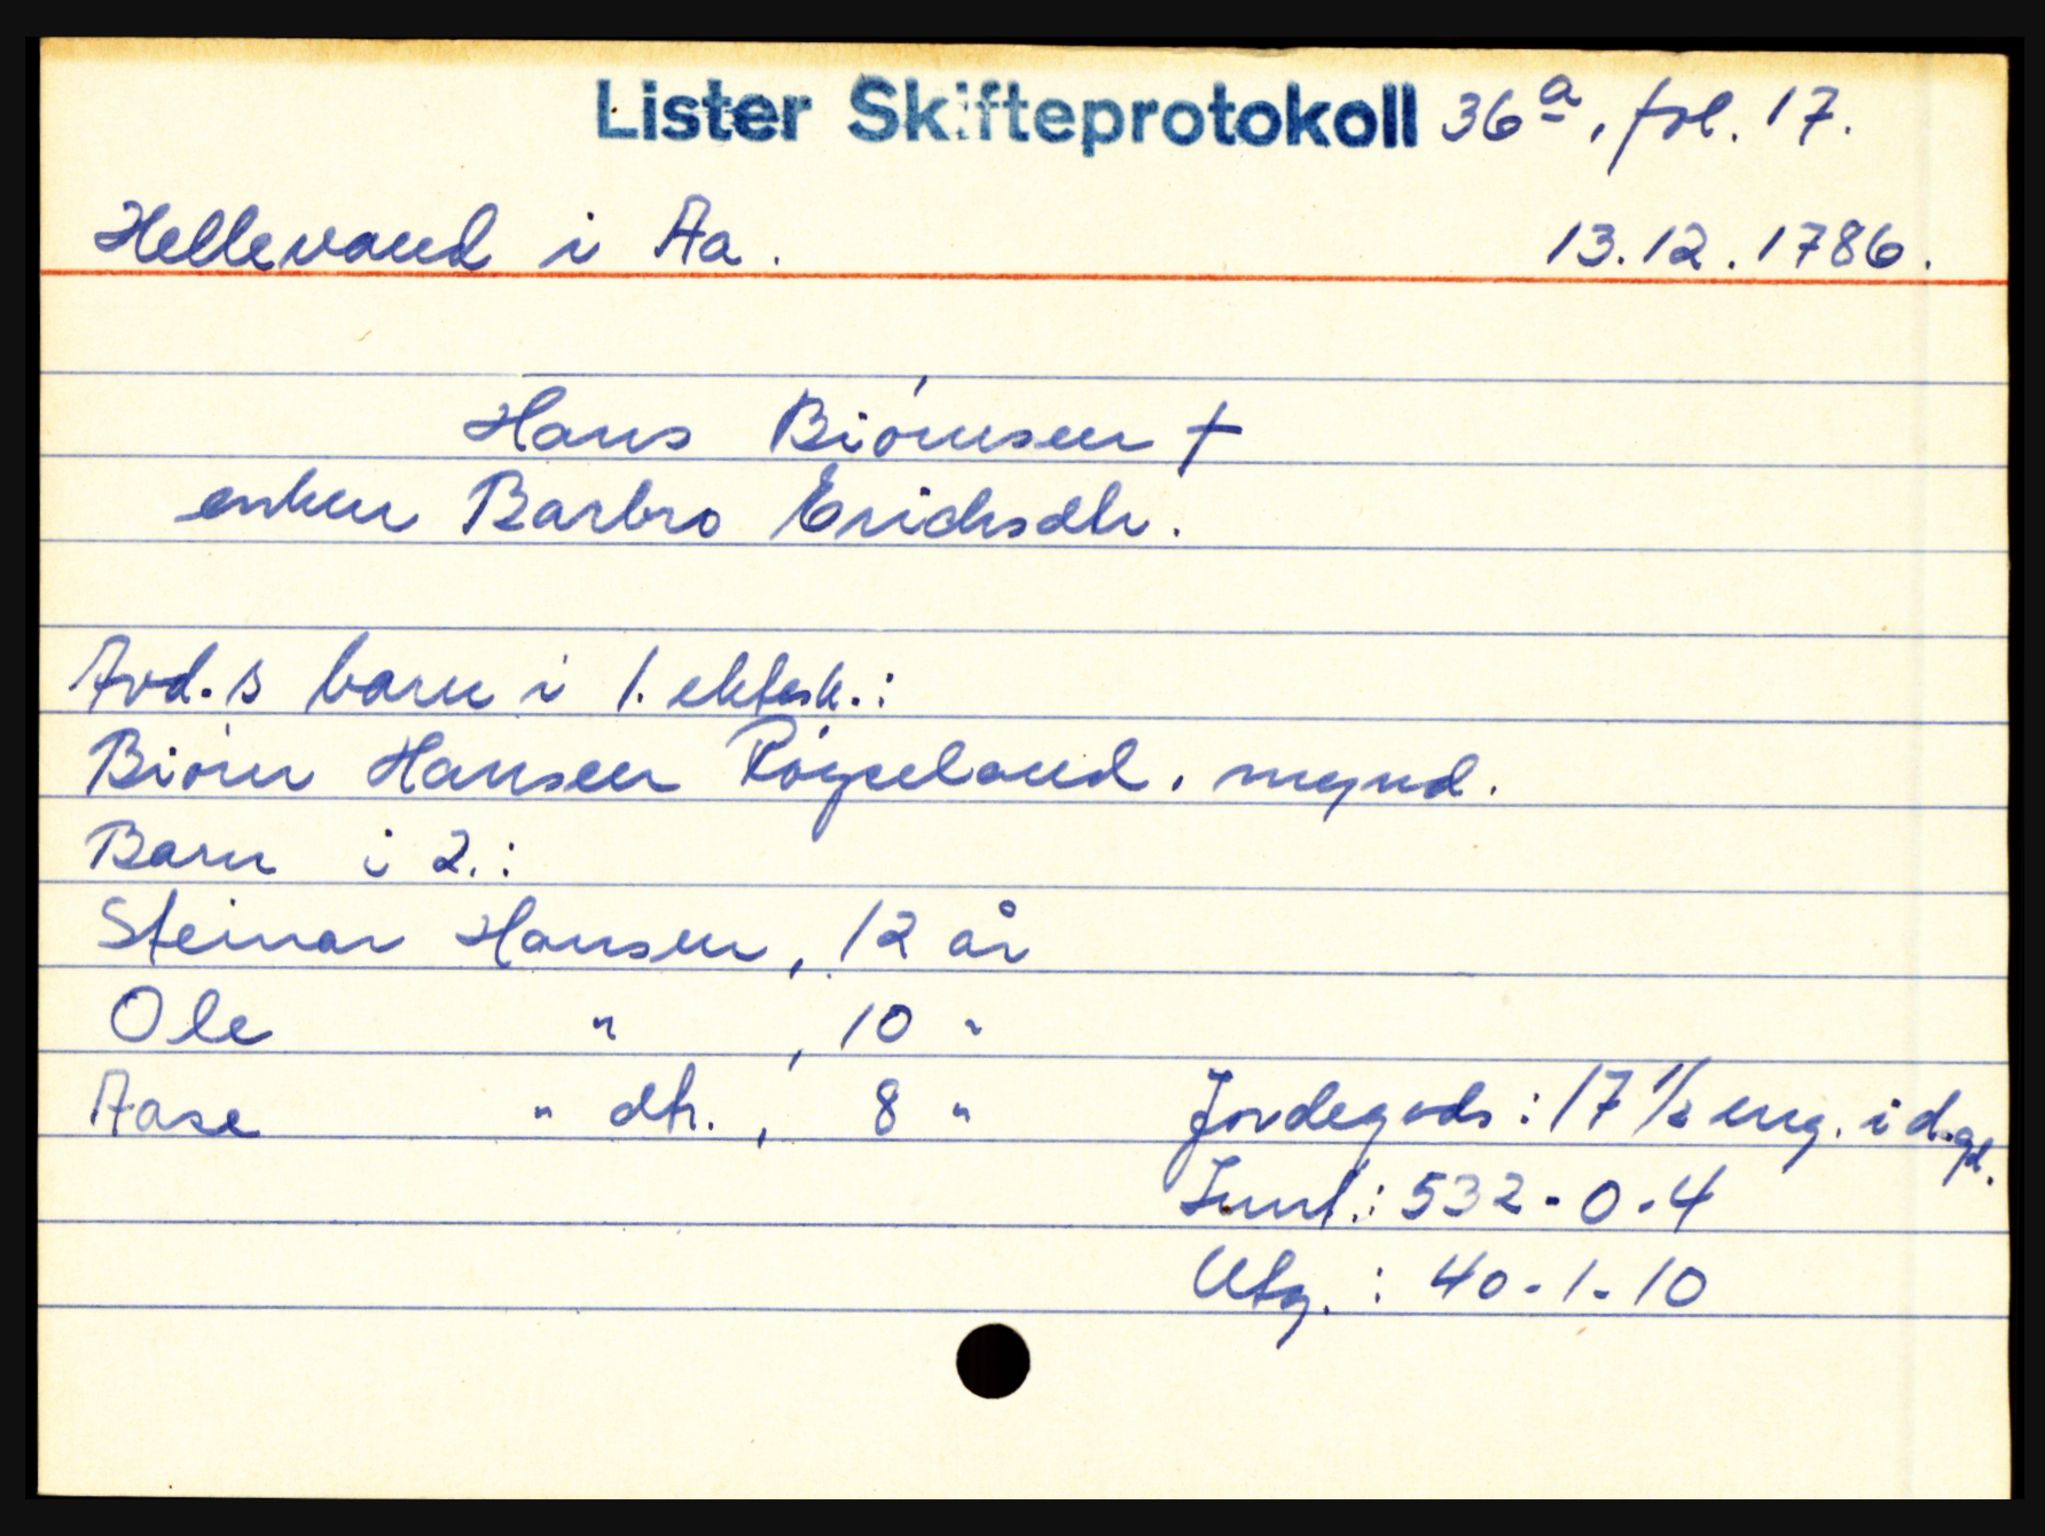 Lister Skifteprotokoll 36a, fol. 17.
Hellevand i Aa. 13.12.1786.
Hans Biórnsen †
enken Barbro Erichsdtr.
Avd.s barn i 1. ektesk.:
Biórn Hansen Róyseland, mynd.
Barn i 2.:
Steinar Hansen, 12 år
Ole " , 10 "
Aase " dtr., 8 "
Jordegods: 17 1/2 eng. i d.gd.
Innt.: 532-0-4
Utg.: 40-1-10